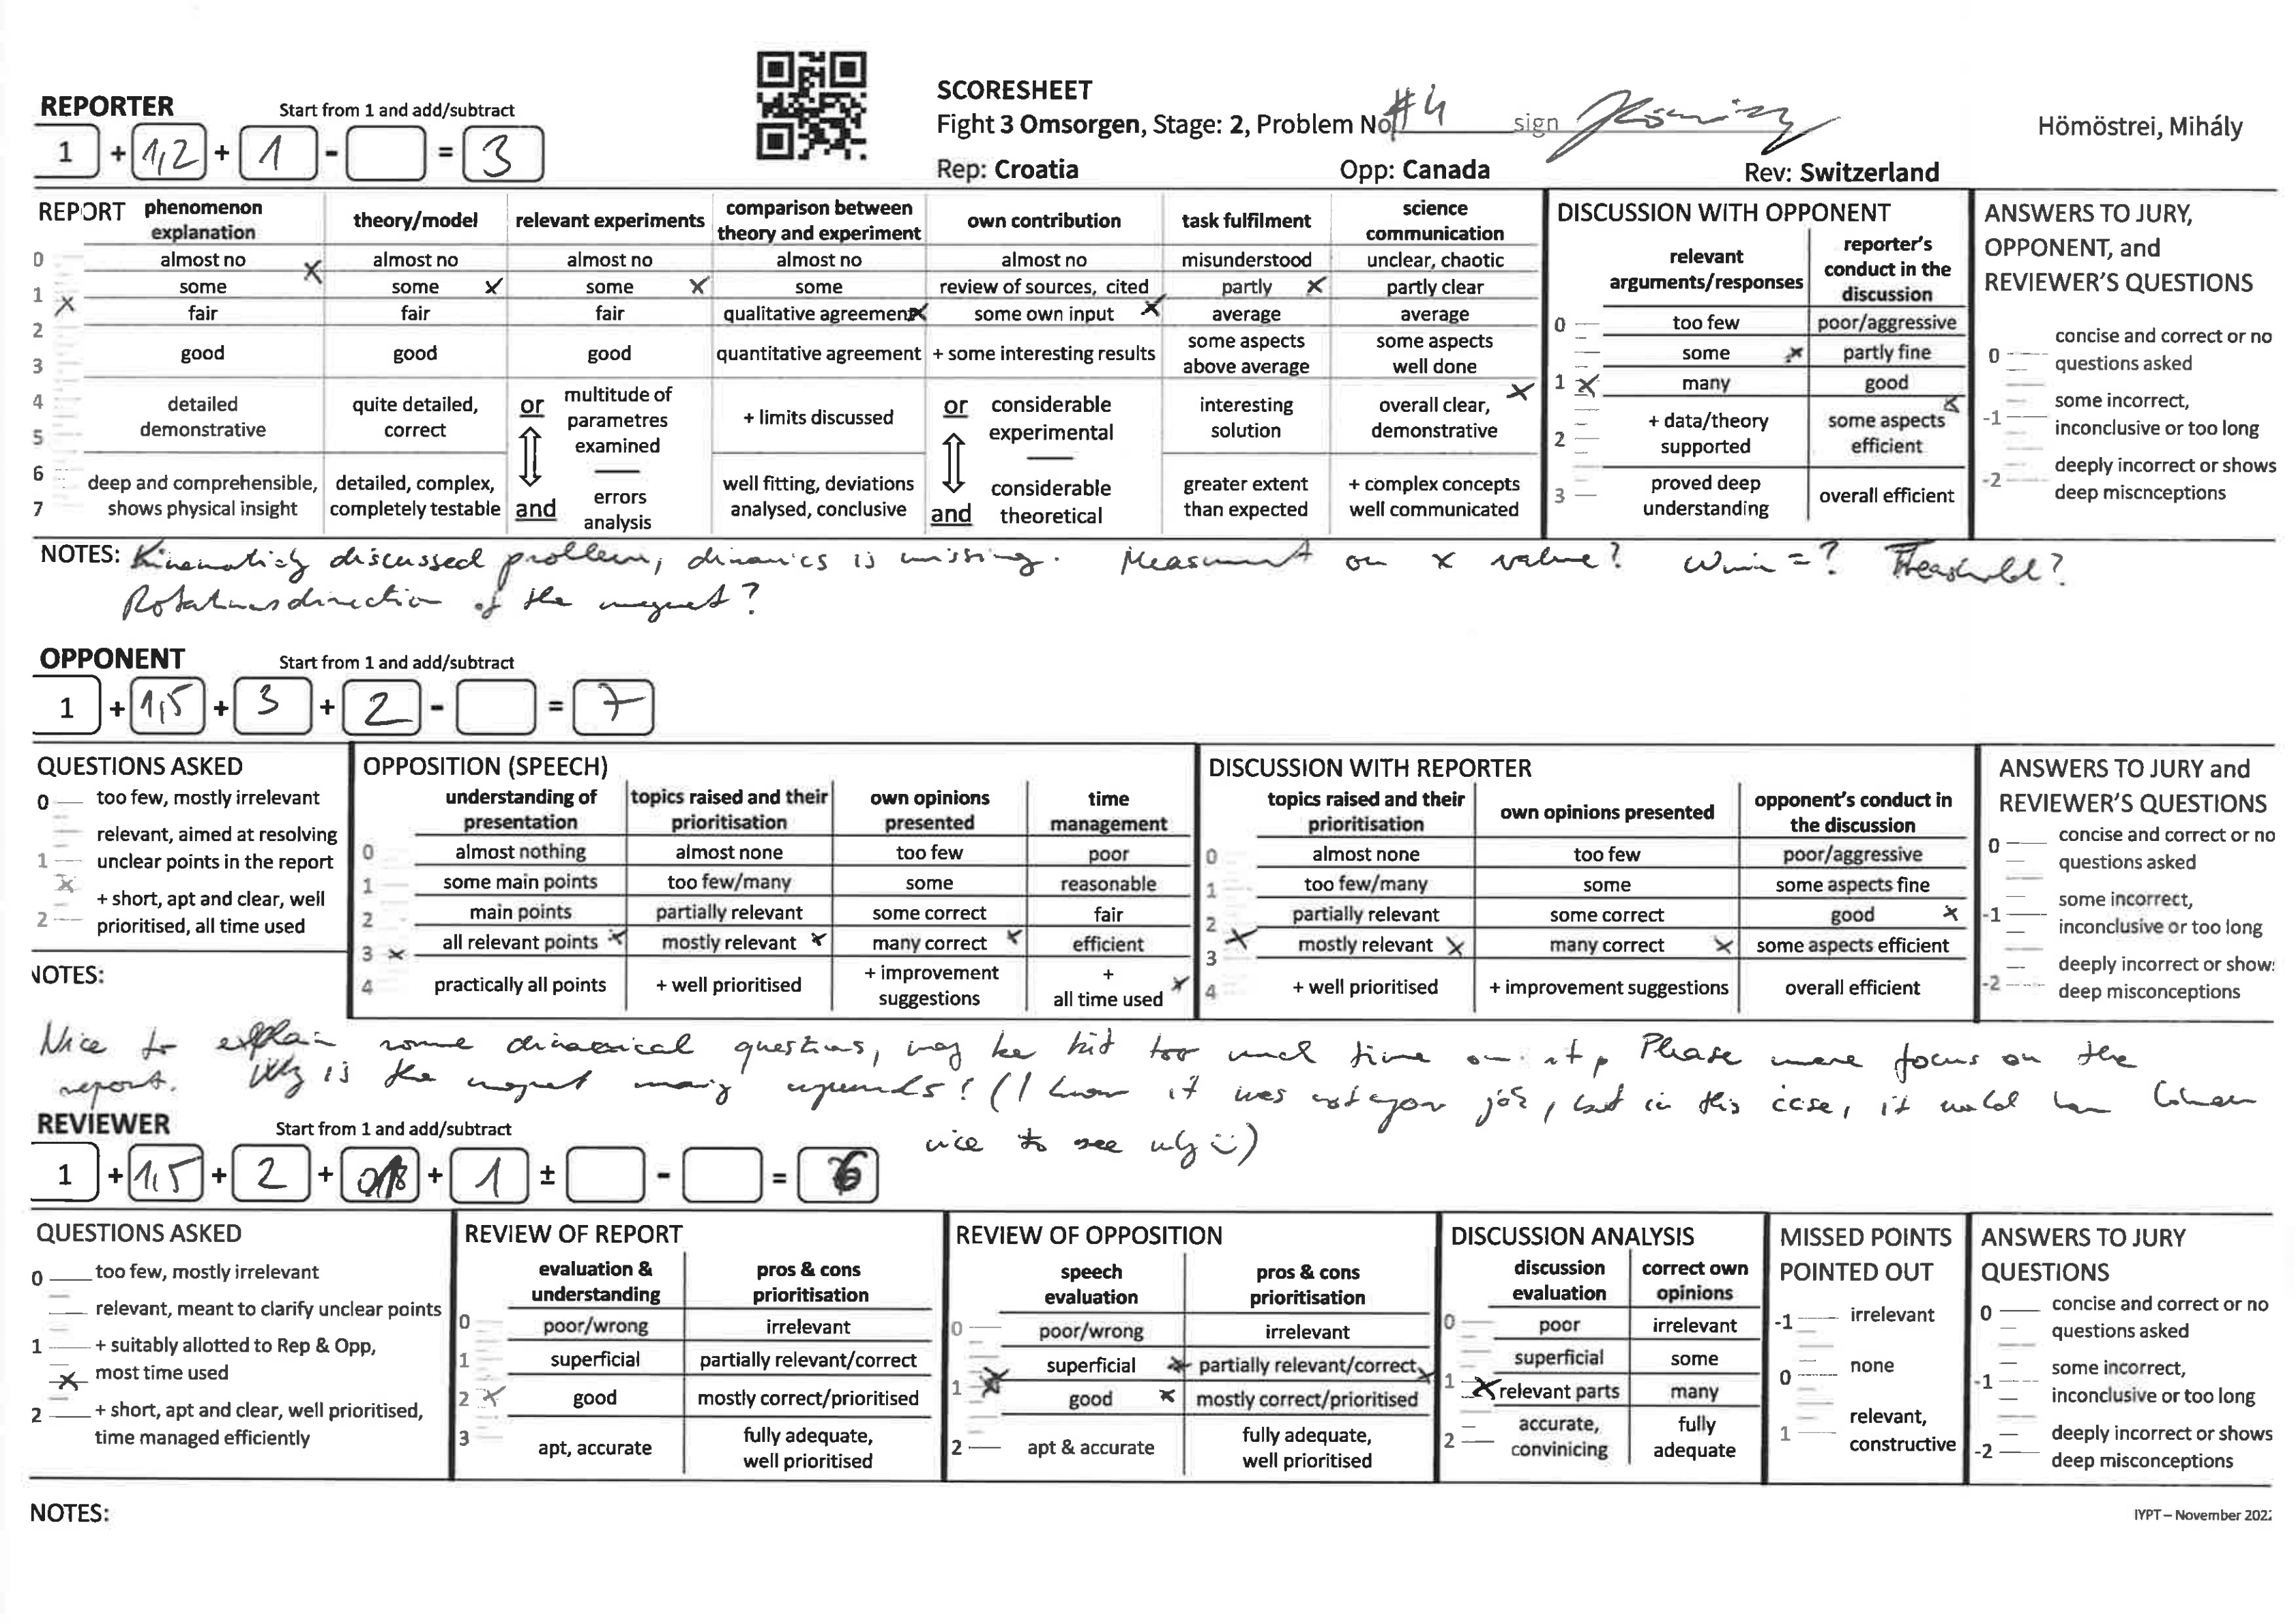 SCORESHEET
REPORTER Start from 1 and add/subtract
Fight 3 Omsorgen, Stage: 2, Problem No #4 sign
Hömöstrei, Mihály
1 + 1,2 + 1 - = 3
Rep: Croatia Opp: Canada Rev: Switzerland
REPORT
phenomenon explanation
0 almost no
some
1
fair
2
good
3
4 detailed demonstrative
5
6 deep and comprehensible, shows physical insight
7
theory/model
almost no
some
fair
good
quite detailed, correct
detailed, complex, completely testable
relevant experiments
almost no
some
fair
good
or
multitude of parametres examined
and
errors analysis
comparison between theory and experiment
almost no
some
qualitative agreement
quantitative agreement
+ limits discussed
well fitting, deviations analysed, conclusive
own contribution
almost no
review of sources, cited
some own input
+ some interesting results
or
considerable experimental
and
considerable theoretical
task fulfilment
misunderstood
partly
average
some aspects above average
interesting solution
greater extent than expected
science communication
unclear, chaotic
partly clear
average
some aspects well done
overall clear, demonstrative
+ complex concepts well communicated
DISCUSSION WITH OPPONENT
relevant arguments/responses
0 too few
some
1 many
2 + data/theory supported
3 proved deep understanding
reporter's conduct in the discussion
poor/aggressive
partly fine
good
some aspects efficient
overall efficient
ANSWERS TO JURY,
OPPONENT, and
REVIEWER'S QUESTIONS
0 concise and correct or no questions asked
-1 some incorrect, inconclusive or too long
-2 deeply incorrect or shows deep miscnceptions
NOTES: discussed problem, dinamics is missing. on x value? Wmin=?
direction of the magnet?
OPPONENT Start from 1 and add/subtract
1 + 1,5 + 3 + 2 - = 7
QUESTIONS ASKED
0 too few, mostly irrelevant
relevant, aimed at resolving
1 unclear points in the report
+ short, apt and clear, well
2 prioritised, all time used
OPPOSITION (SPEECH)
understanding of presentation
0 almost nothing
1 some main points
2 main points
3 all relevant points
4 practically all points
topics raised and their prioritisation
almost none
too few/many
partially relevant
mostly relevant
+ well prioritised
own opinions presented
too few
some
some correct
many correct
+ improvement suggestions
time management
poor
reasonable
fair
efficient
+
all time used
DISCUSSION WITH REPORTER
topics raised and their prioritisation
0 almost none
1 too few/many
2 partially relevant
3 mostly relevant
4 + well prioritised
own opinions presented
too few
some
some correct
many correct
+ improvement suggestions
opponent's conduct in the discussion
poor/aggressive
some aspects fine
good
some aspects efficient
overall efficient
ANSWERS TO JURY and
REVIEWER'S QUESTIONS
0 concise and correct or no questions asked
-1 some incorrect, inconclusive or too long
-2 deeply incorrect or show deep misconceptions
NOTES:
Nice to explain some questions, may be too time on it, Please more focus on the
report. Why is the (I know it was not your job, but in this case, it
nice to see why :)
REVIEWER Start from 1 and add/subtract
1 + 1,5 + 2 + + 1 ± - = 6
QUESTIONS ASKED
0 too few, mostly irrelevant
relevant, meant to clarify unclear points
1 + suitably allotted to Rep & Opp,
most time used
2 + short, apt and clear, well prioritised,
time managed efficiently
REVIEW OF REPORT
evaluation & understanding
0 poor/wrong
1 superficial
2 good
3 apt, accurate
pros & cons prioritisation
irrelevant
partially relevant/correct
mostly correct/prioritised
fully adequate, well prioritised
REVIEW OF OPPOSITION
speech evaluation
0 poor/wrong
superficial
1 good
2 apt & accurate
pros & cons prioritisation
irrelevant
partially relevant/correct
mostly correct/prioritised
fully adequate, well prioritised
DISCUSSION ANALYSIS
discussion evaluation
0 poor
superficial
1 relevant parts
2 accurate, convinicing
correct own opinions
irrelevant
some
many
fully adequate
MISSED POINTS
POINTED OUT
-1 irrelevant
0 none
1 relevant, constructive
ANSWERS TO JURY
QUESTIONS
0 concise and correct or no questions asked
-1 some incorrect, inconclusive or too long
-2 deeply incorrect or shows deep misconceptions
NOTES:
IYPT – November 202